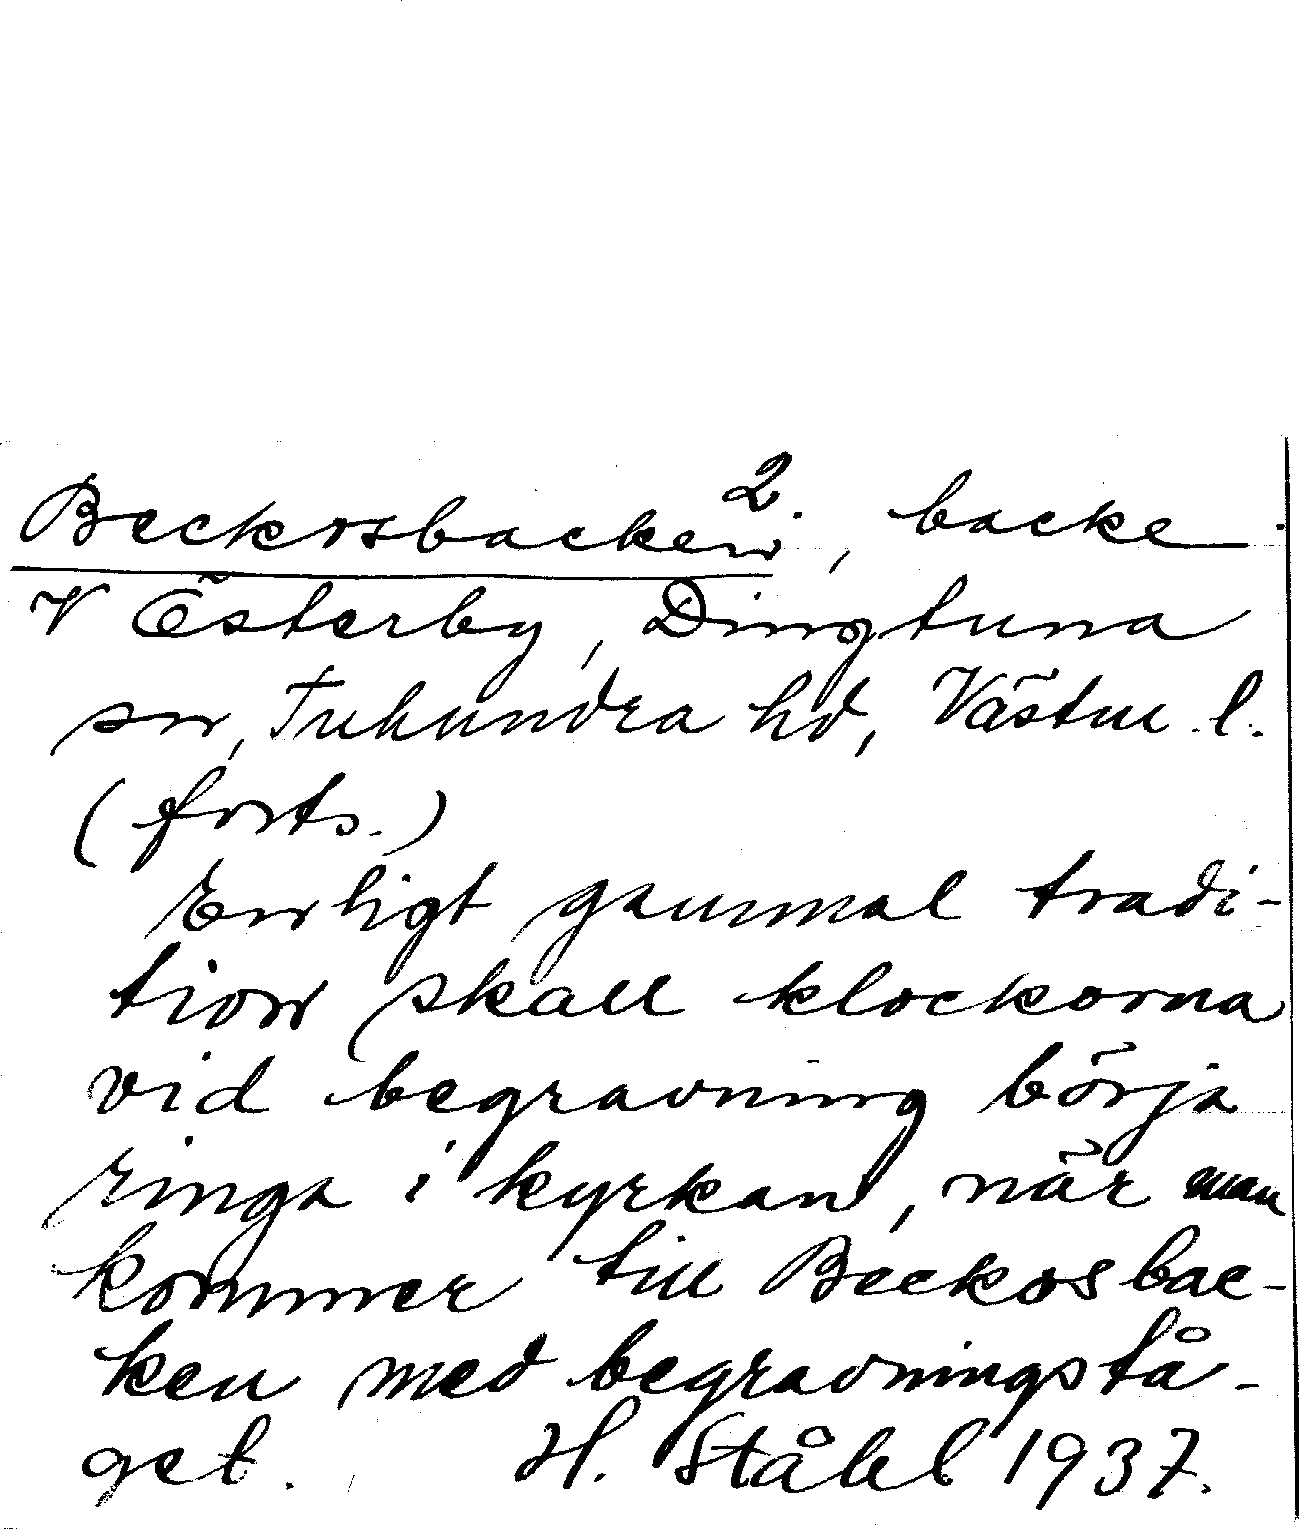 Beckosbacken 2. , backe
V Österby, Dingtuna
sn, Tuhundra hd, Västm. l.
(forts.)
Enligt gammal tradi-
tion skall klockorna
vid begravning börja
ringa i kyrkan, när man
kommer till Beckosbac-
ken med begravningstå-
get. H. Ståhl 1937.